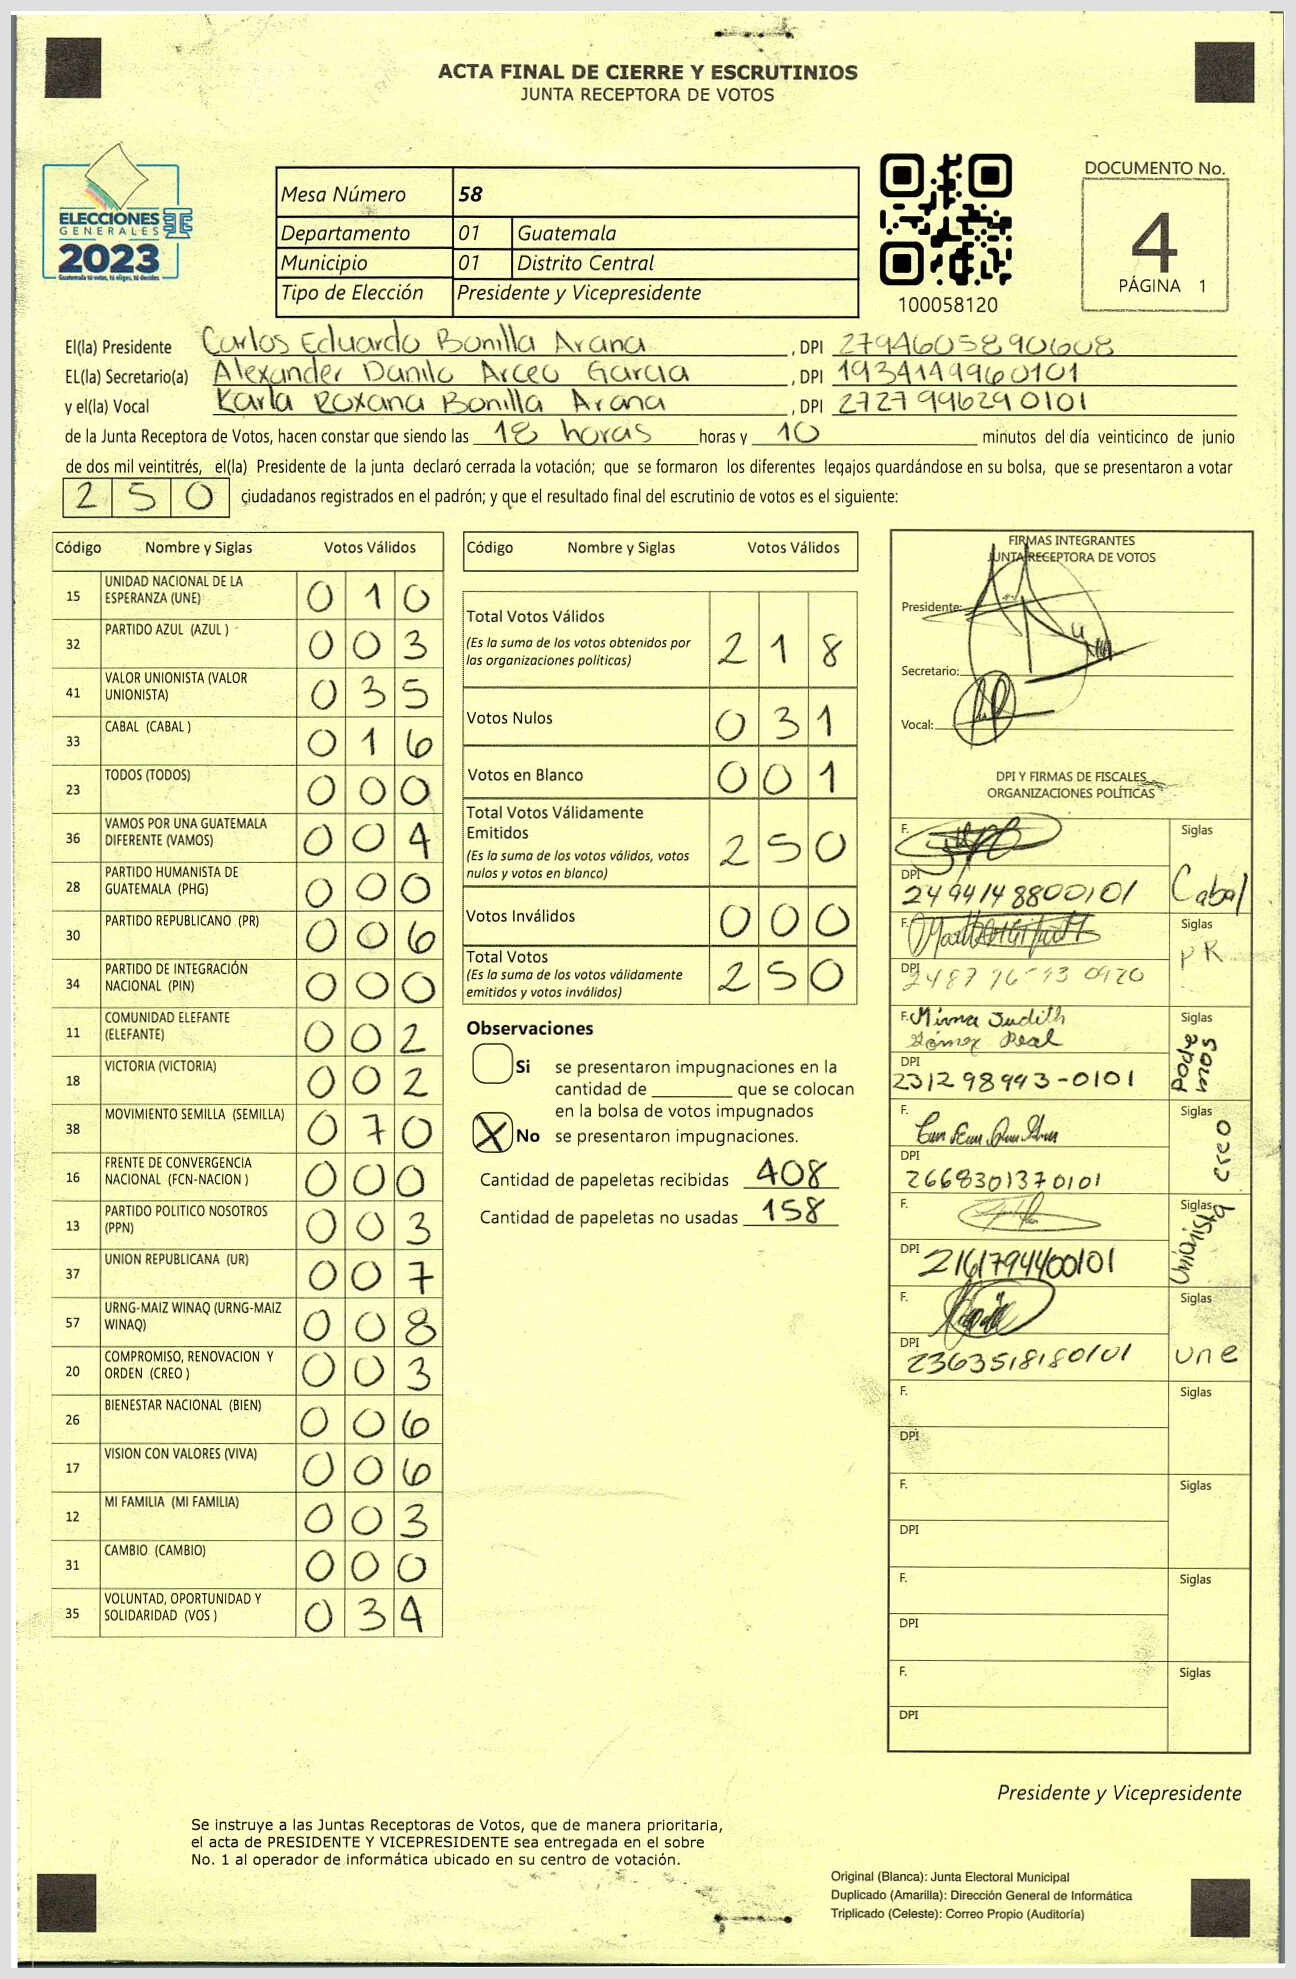 ACTA FINAL DE CIERRE Y ESCRUTINIOS
JUNTA RECEPTORA DE VOTOS
ELECCIONES
GENERALES
2023
Guatemala tú votas, tú eliges, tú decides
Mesa Número 58
Departamento 01 Guatemala
Municipio 01 Distrito Central
Tipo de Elección Presidente y Vicepresidente
100058120
DOCUMENTO No.
4
PÁGINA 1
El(la) Presidente Carlos Eduardo Bonilla Arana , DPI 2794605890608
EL(la) Secretario(a) Alexander Danilo Arceo Garcia , DPI 1934149960101
y el(la) Vocal Karla Roxana Bonilla Arana , DPI 2727996290101
de la Junta Receptora de Votos, hacen constar que siendo las 18 horas horas y 10 minutos del día veinticinco de junio
de dos mil veintitrés, el(la) Presidente de la junta declaró cerrada la votación; que se formaron los diferentes legajos guardándose en su bolsa, que se presentaron a votar
250 ciudadanos registrados en el padrón; y que el resultado final del escrutinio de votos es el siguiente:
Código Nombre y Siglas Votos Válidos
15 UNIDAD NACIONAL DE LA ESPERANZA (UNE) 010
32 PARTIDO AZUL (AZUL ) 003
41 VALOR UNIONISTA (VALOR UNIONISTA) 035
33 CABAL (CABAL ) 016
23 TODOS (TODOS) 000
36 VAMOS POR UNA GUATEMALA DIFERENTE (VAMOS) 004
28 PARTIDO HUMANISTA DE GUATEMALA (PHG) 000
30 PARTIDO REPUBLICANO (PR) 006
34 PARTIDO DE INTEGRACIÓN NACIONAL (PIN) 000
11 COMUNIDAD ELEFANTE (ELEFANTE) 002
18 VICTORIA (VICTORIA) 002
38 MOVIMIENTO SEMILLA (SEMILLA) 070
16 FRENTE DE CONVERGENCIA NACIONAL (FCN-NACION ) 000
13 PARTIDO POLITICO NOSOTROS (PPN) 003
37 UNION REPUBLICANA (UR) 007
57 URNG-MAIZ WINAQ (URNG-MAIZ WINAQ) 008
20 COMPROMISO, RENOVACION Y ORDEN (CREO ) 003
26 BIENESTAR NACIONAL (BIEN) 006
17 VISION CON VALORES (VIVA) 006
12 MI FAMILIA (MI FAMILIA) 003
31 CAMBIO (CAMBIO) 000
35 VOLUNTAD, OPORTUNIDAD Y SOLIDARIDAD (VOS ) 034
Código Nombre y Siglas Votos Válidos
Total Votos Válidos 218
(Es la suma de los votos obtenidos por
las organizaciones políticas)
Votos Nulos 031
Votos en Blanco 001
Total Votos Válidamente
Emitidos 250
(Es la suma de los votos válidos, votos
nulos y votos en blanco)
Votos Inválidos 000
Total Votos 250
(Es la suma de los votos válidamente
emitidos y votos inválidos)
Observaciones
Si se presentaron impugnaciones en la
cantidad de ________ que se colocan
en la bolsa de votos impugnados
X No se presentaron impugnaciones.
Cantidad de papeletas recibidas 408
Cantidad de papeletas no usadas 158
FIRMAS INTEGRANTES
JUNTA RECEPTORA DE VOTOS
Presidente:
Secretario:
Vocal:
DPI Y FIRMAS DE FISCALES
ORGANIZACIONES POLÍTICAS
F. Siglas
DPI 2494148800101 Cabal
F. Siglas
DPI PR
F. Mirna Judith Siglas
Gómez Real
DPI 231298943-0101 Podemos
F. Siglas
DPI 2668301370101 creo
F. Siglas
DPI 2161794400101 Unionista
F. Siglas
DPI 2363518180101 une
F. Siglas
DPI
F. Siglas
DPI
F. Siglas
DPI
F. Siglas
DPI
Presidente y Vicepresidente
Se instruye a las Juntas Receptoras de Votos, que de manera prioritaria,
el acta de PRESIDENTE Y VICEPRESIDENTE sea entregada en el sobre
No. 1 al operador de informática ubicado en su centro de votación.
Original (Blanca): Junta Electoral Municipal
Duplicado (Amarilla): Dirección General de Informática
Triplicado (Celeste): Correo Propio (Auditoría)